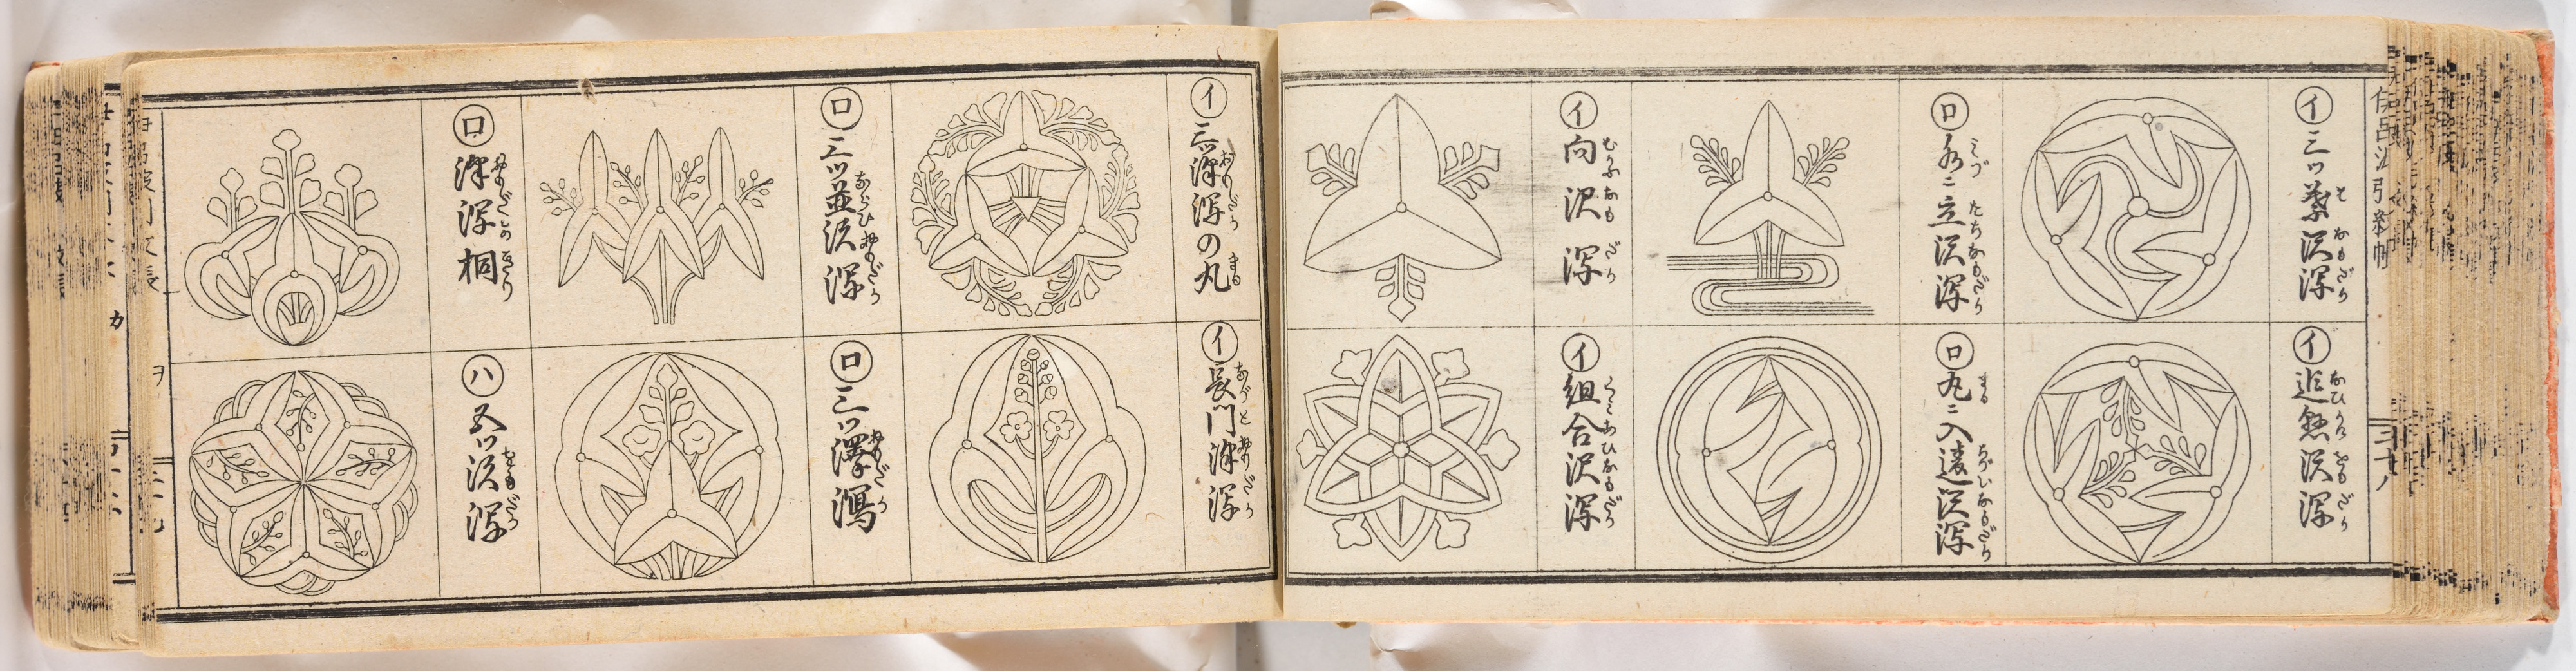 伊呂波引紋帖
イ
三ツ葉沢瀉
おもだか
イ
追懸沢瀉
おひかけおもだか
ロ
水ニ立沢瀉
みづ たちおもだか
ロ
丸ニ入違沢瀉
まる ちがいおもだか
イ
向沢瀉
むかふおもだか
イ
組合沢瀉
くみあひおもだか
イ
三ツ沢瀉の丸
おもだか まる
イ
長門沢瀉
ながとおもだか
ロ
三ツ並沢瀉
ならひおもだか
ロ
三ツ澤瀉
おもだか
ロ
沢瀉桐
おもだかのきり
ハ
五ツ沢瀉
おもだか
ヲ
カ